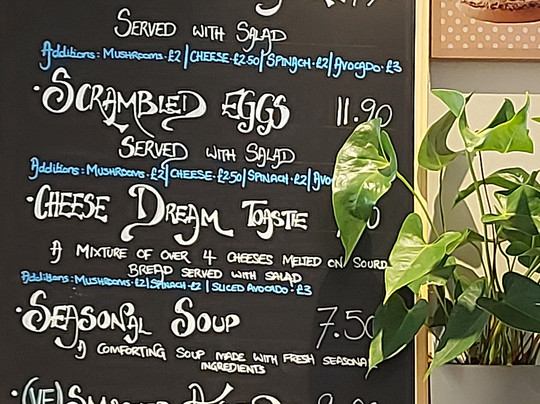 SERVED WITH SALAD
Additions: MUSHROOMS·£2 | CHEESE·£2.50 | SPINACH·£2 | AVOCADO·£3
·SCRAMBLED EGGS 11.90
SERVED WITH SALAD
Additions: MUSHROOMS·£2 | CHEESE·£2.50 | SPINACH·£2 | AVO
·CHEESE DREAM TOASTIE 0
A MIXTURE OF OVER 4 CHEESES MELTED ON SOURD
BREAD SERVED WITH SALAD
Additions: MUSHROOMS·£2 | SPINACH·£2 | SLICED AVOCADO·£3
·SEASONAL SOUP 7.50
A COMFORTING SOUP MADE WITH FRESH SEASONAL
INGREDIENTS
·(VE)